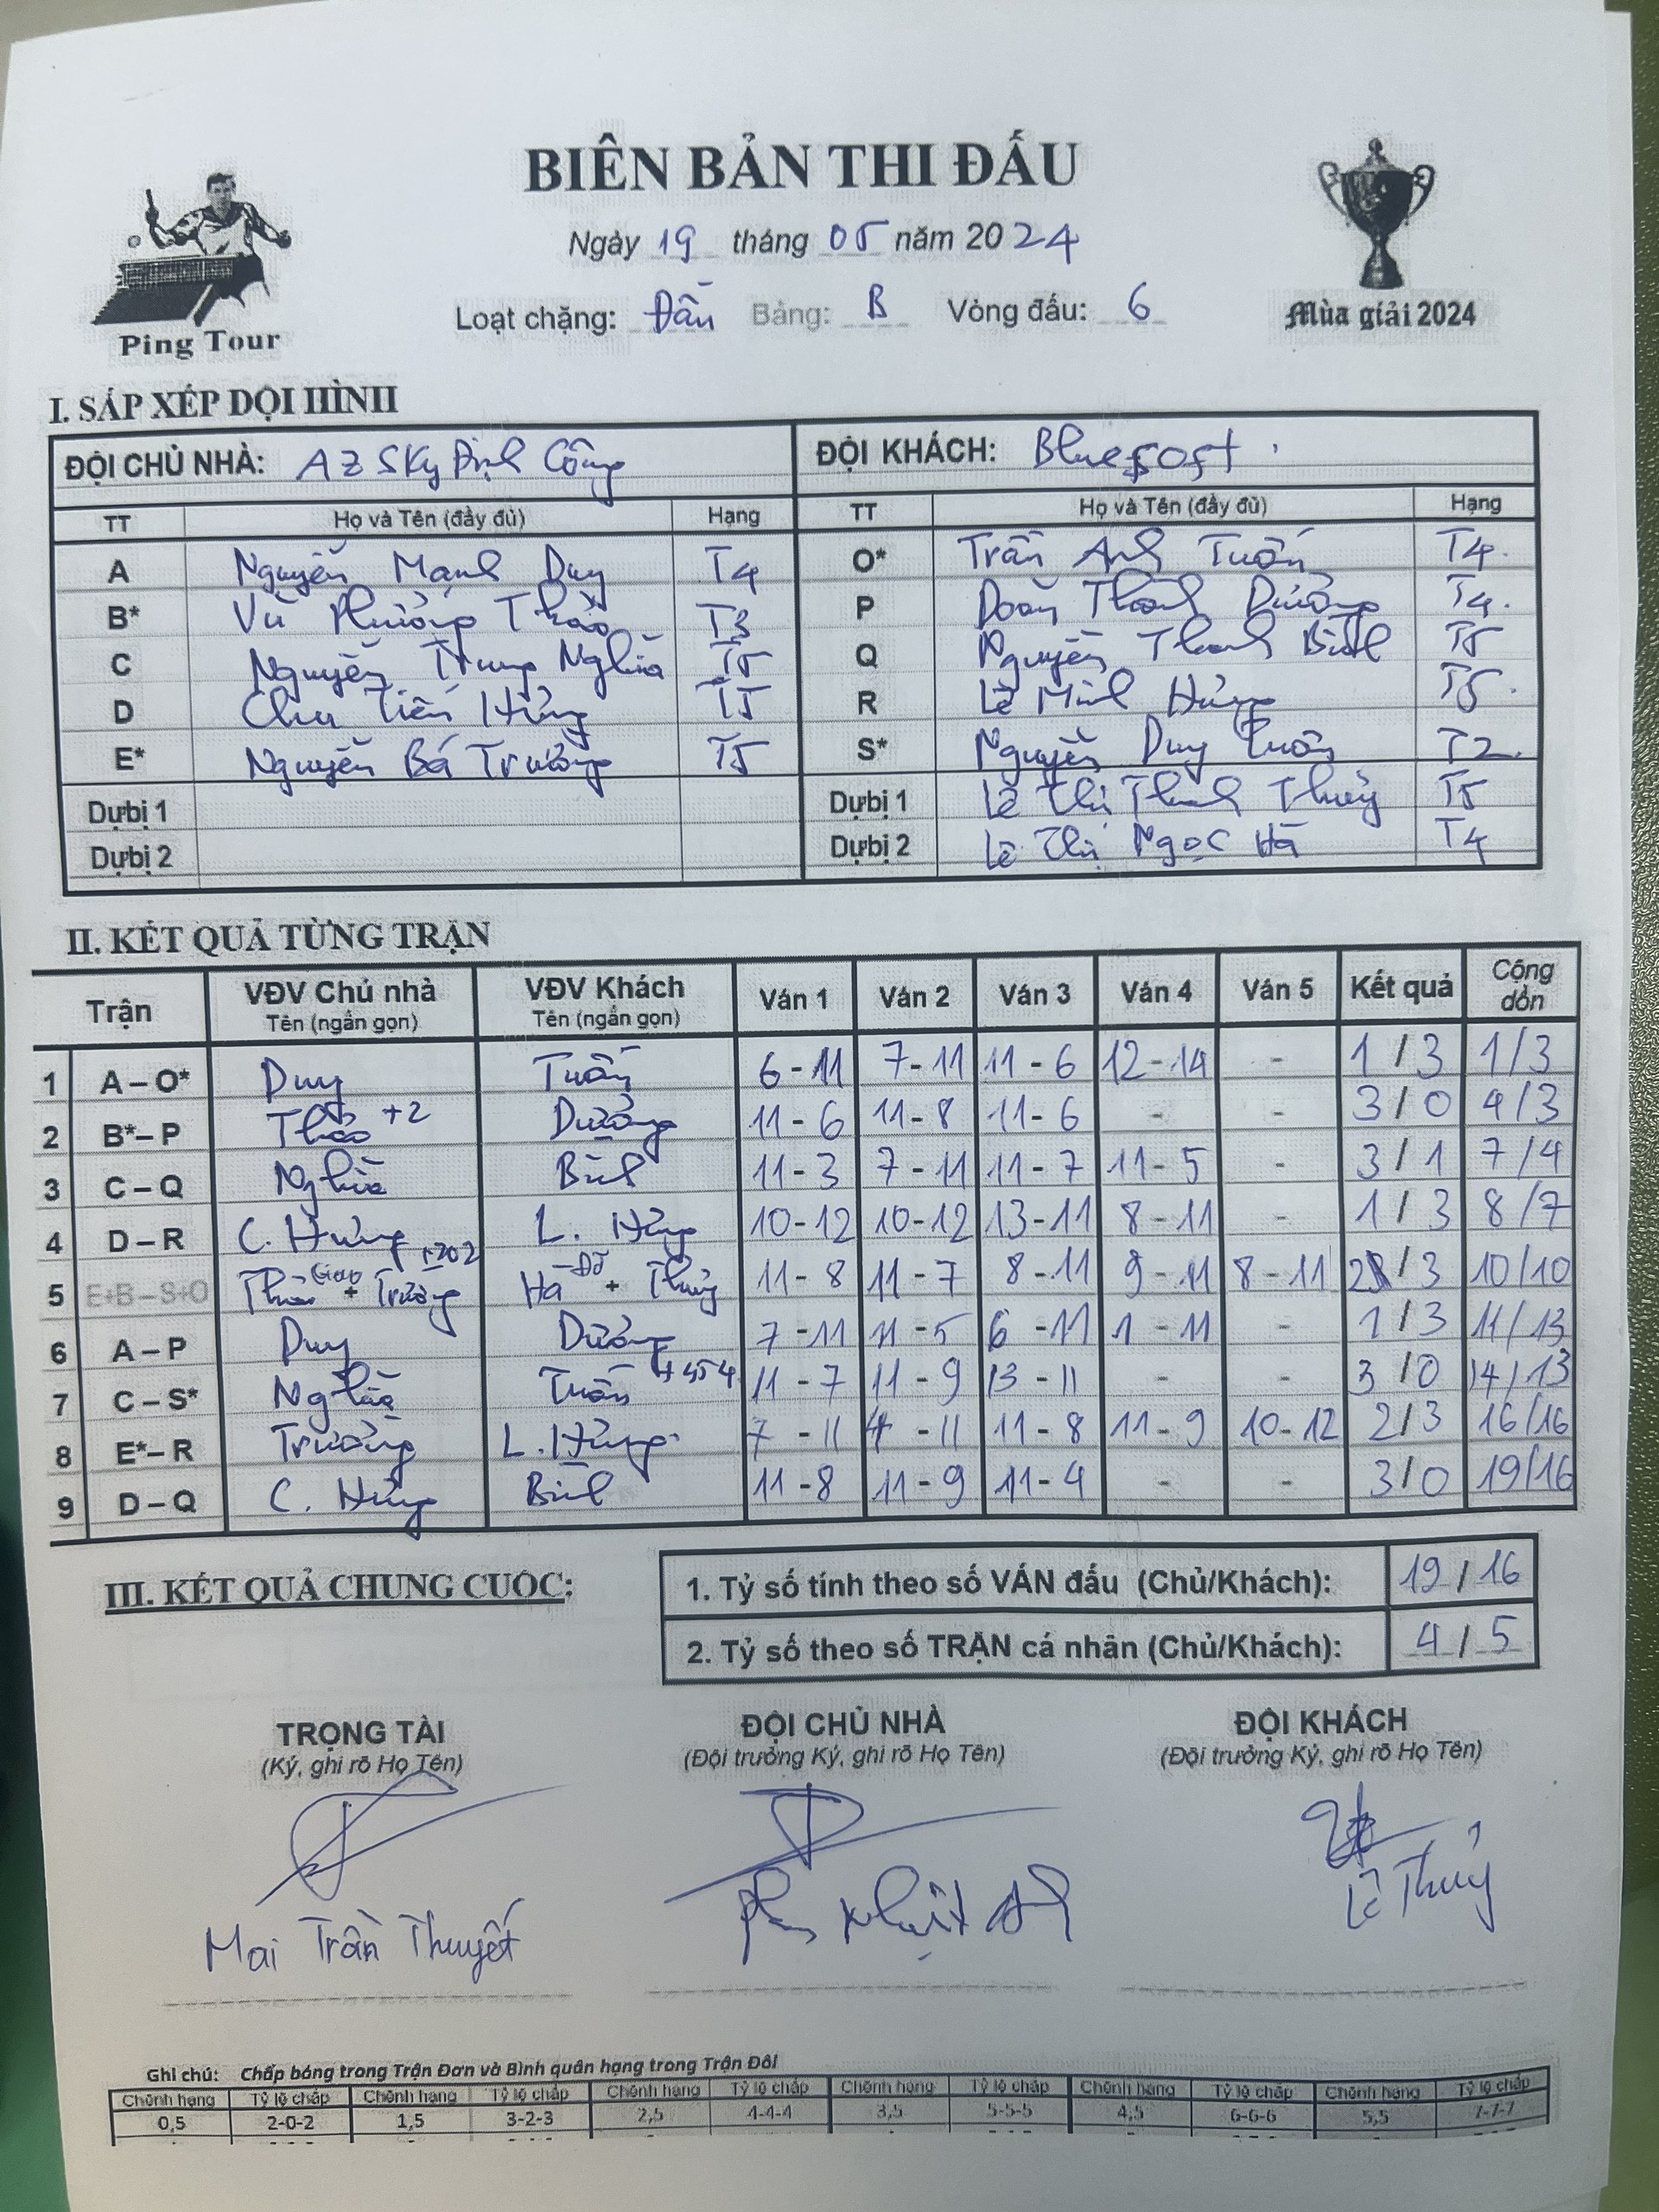 BIÊN BẢN THI ĐẤU
Ngày 19 tháng 05 năm 2024
Loạt chặng: Đầu Bảng: B Vòng đấu: 6
Ping Tour
Mùa giải 2024
I. SẮP XẾP ĐỘI HÌNH
ĐỘI CHỦ NHÀ: AZ SKy Định Công ĐỘI KHÁCH:
TT Họ và Tên (đầy đủ) Hạng TT Họ và Tên (đầy đủ) Hạng
A Nguyễn Mạnh Duy T4 O* Trần Anh Tuấn T4.
B* Vũ Phương Thảo T3 P Doãn Thanh Dương T4.
C Nguyễn Trung Nghĩa T5 Q Nguyễn Thanh Bình T5
D Chu Tiến Hưng T5 R Lê Minh Hùng T5.
E* Nguyễn Bá Trường T5 S* Nguyễn Duy Tuấn T2.
Dự bị 1 Dự bị 1 Lê Thị Thanh Thủy T5
Dự bị 2 Dự bị 2 Lê Thị Ngọc Hà T4
II. KẾT QUẢ TỪNG TRẬN
Trận VĐV Chủ nhà Tên (ngắn gọn) VĐV Khách Tên (ngắn gọn) Ván 1 Ván 2 Ván 3 Ván 4 Ván 5 Kết quả Cộng dồn
1 A – O* Duy Tuấn 6 - 11 7 - 11 11 - 6 12 - 14 - 1 / 3 1/3
2 B* – P Thảo +2 Dương 11 - 6 11 - 8 11 - 6 - - 3 / 0 4/3
3 C – Q Nghĩa Bình 11 - 3 7 - 11 11 - 7 11 - 5 - 3 / 1 7/4
4 D – R C. Hưng L. Hùng 10 - 12 10 - 12 13 - 11 8 - 11 - 1 / 3 8/7
5 E+B – S+O Thảo + Trường +202 Hà + Thủy 11 - 8 11 - 7 8 - 11 9 - 11 8 - 11 2 / 3 10/10
6 A – P Duy Dương 7 - 11 11 - 5 6 - 11 1 - 11 - 1 / 3 11/13
7 C – S* Nghĩa Tuấn 11 - 7 11 - 9 13 - 11 - - 3 / 0 14/13
8 E* – R Trường L. Hùng 7 - 11 4 - 11 11 - 8 11 - 9 10 - 12 2 / 3 16/16
9 D – Q C. Hưng Bình 11 - 8 11 - 9 11 - 4 - - 3 / 0 19/16
III. KẾT QUẢ CHUNG CUỘC:
1. Tỷ số tính theo số VÁN đấu (Chủ/Khách): 19 / 16
2. Tỷ số theo số TRẬN cá nhân (Chủ/Khách): 4 / 5
TRỌNG TÀI ĐỘI CHỦ NHÀ ĐỘI KHÁCH
(Ký, ghi rõ Họ Tên) (Đội trưởng Ký, ghi rõ Họ Tên) (Đội trưởng Ký, ghi rõ Họ Tên)
Mai Trần Thuyết Nhật Anh Lê Thủy
Ghi chú: Chấp bóng trong Trận Đơn và Bình quân hạng trong Trận Đôi
Chênh hạng Tỷ lệ chấp Chênh hạng Tỷ lệ chấp Chênh hạng Tỷ lệ chấp Chênh hạng Tỷ lệ chấp Chênh hạng Tỷ lệ chấp Chênh hạng Tỷ lệ chấp
0,5 2-0-2 1,5 3-2-3 2,5 4-4-4 3,5 5-5-5 4,5 6-6-6 5,5 7-7-7